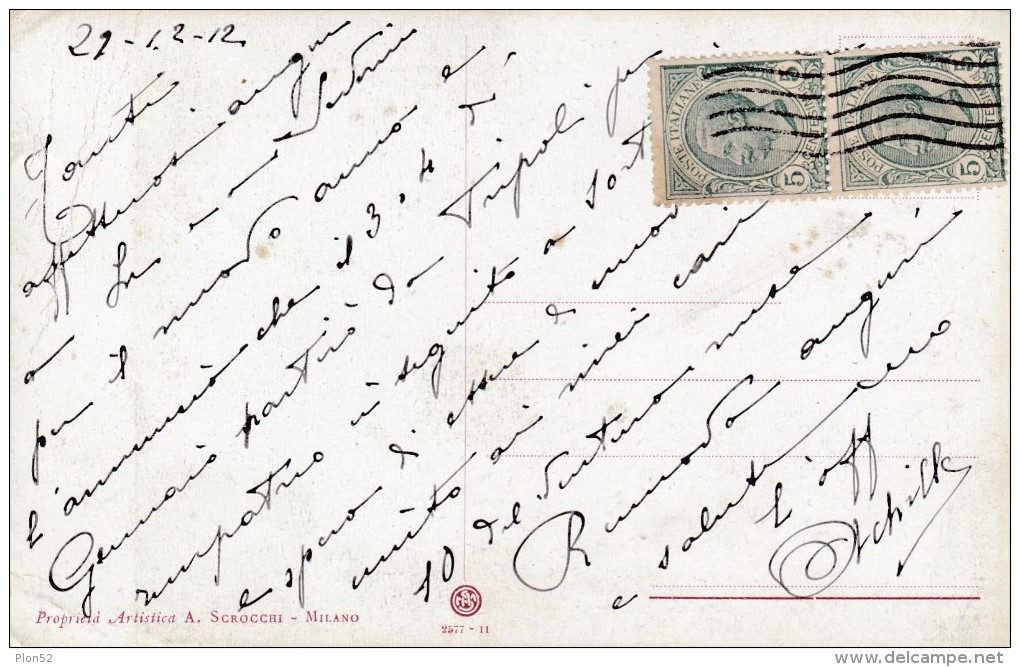 29-12-12.
Tanti
affettuosi auguri
a Lei e a
per il nuovo anno e
l'annunzio che il 3, 4 di
Gennaio partirò da Tripoli per
rimpatrio in seguito a
e spero di essere di nuovo
unito ai miei cari
10 del venturo mese
Rinnovo auguri
e saluti
L'aff
Achille
POSTE ITALIANE
5 CENTESIMI 5
POSTE ITALIANE
5 CENTESIMI 5
Proprietà Artistica A. SCROCCHI - MILANO
2577 - 11
Plon52